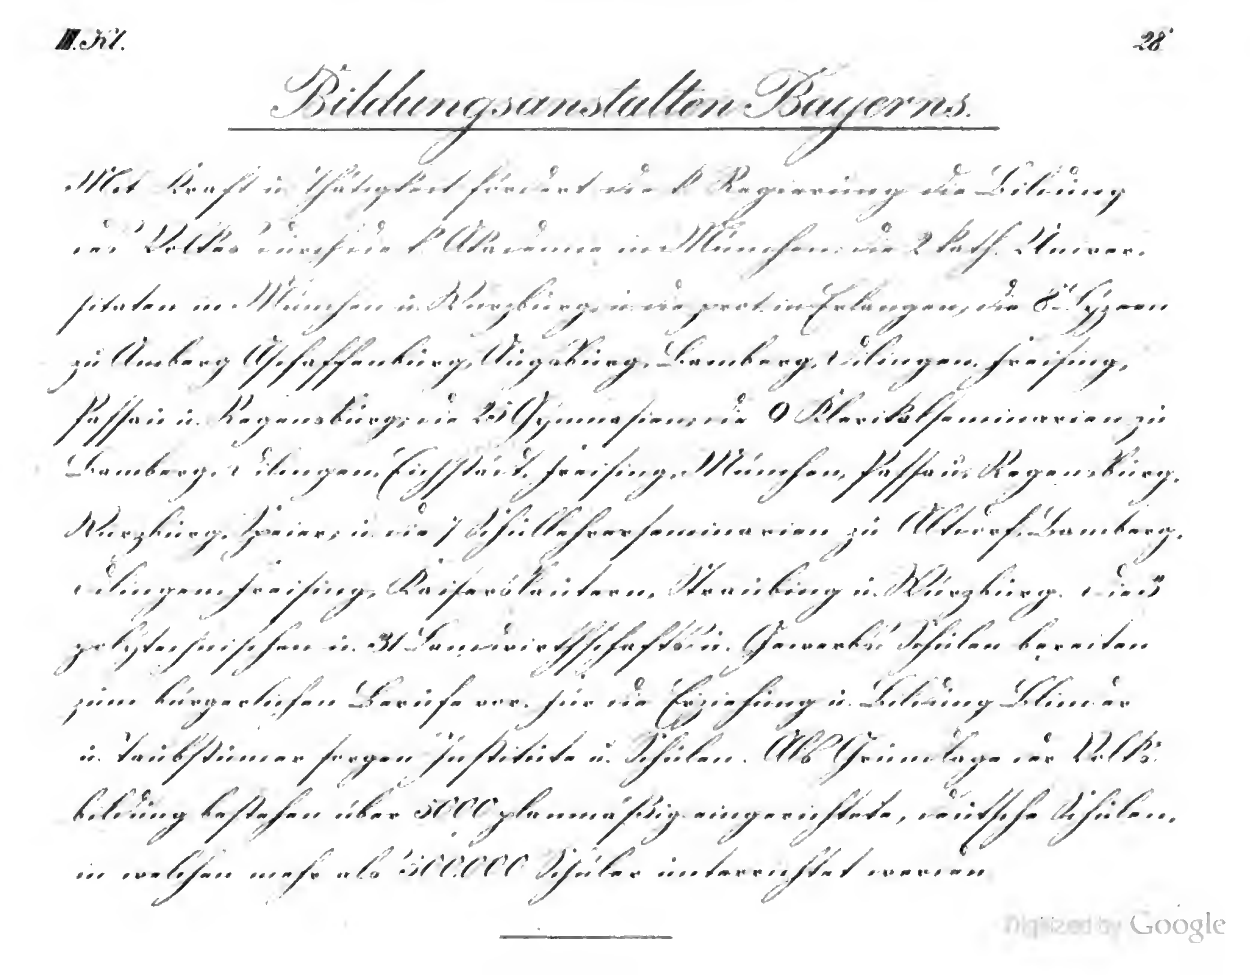 III. Kl. 28
Bildungsanstalten Bayerns.
Mit Kraft u. Thätigkeit fördert die k. Regierung die Bildung
des Volkes durch die k. Akademie in München, die 2 kath. Univer-
sitäten in München u. Würzburg, u. die prot. in Erlangen, die 8 Lyzeen
zu Amberg, Aschaffenburg, Augsburg, Bamberg, Dilingen, Freising,
Passau u. Regensburg; die 25 Gymnasien, die 9 Klerikalseminarien zu
Bamberg, Dilingen, Eichstädt, Freising, München, Passau, Regensburg,
Würzburg, Speier, u. die 7 Schullehrerseminarien zu Altdorf, Bamberg,
Dilingen, Freising, Kaiserslautern, Straubing u. Würzburg. Die 3
polytechnischen u. 31 Landwirthschafts- u. Gewerbs-Schulen bereiten
zum bürgerlichen Berufe vor. Für die Erziehung u. Bildung Blinder
u. Taubstumer sorgen Institute u. Schulen. Als Grundlage der Volks-
bildung bestehen über 5000 planmäßig eingerichtete, deutsche Schulen,
in welchen mehr als 500.000 Schüler unterrichtet werden.
Digitized by Google